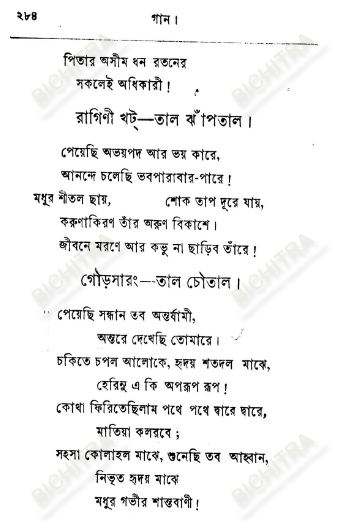 ২৮৪ গান।
পিতার অসীম ধন রতনের
সকলেই অধিকারী!
রাগিণী খট্—তাল ঝাঁপতাল।
পেয়েছি অভয়পদ আর ভয় কারে,
আনন্দে চলেছি ভবপারাবার-পারে!
মধুর শীতল ছায়, শোক তাপ দূরে যায়,
করুণাকিরণ তাঁর অরুণ বিকাশে।
জীবনে মরণে আর কভু না ছাড়িব তাঁরে!
গৌড়সারং—তাল চৌতাল।
পেয়েছি সন্ধান তব অন্তর্যামী,
অন্তরে দেখেছি তোমারে।
চকিতে চপল আলোকে, হৃদয় শতদল মাঝে,
হেরিনু এ কি অপরূপ রূপ!
কোথা ফিরিতেছিলাম পথে পথে দ্বারে দ্বারে,
মাতিয়া কলরবে;
সহসা কোলাহল মাঝে, শুনেছি তব আহ্বান,
নিভৃত হৃদয় মাঝে
মধুর গভীর শান্তবাণী!
BICHITRA